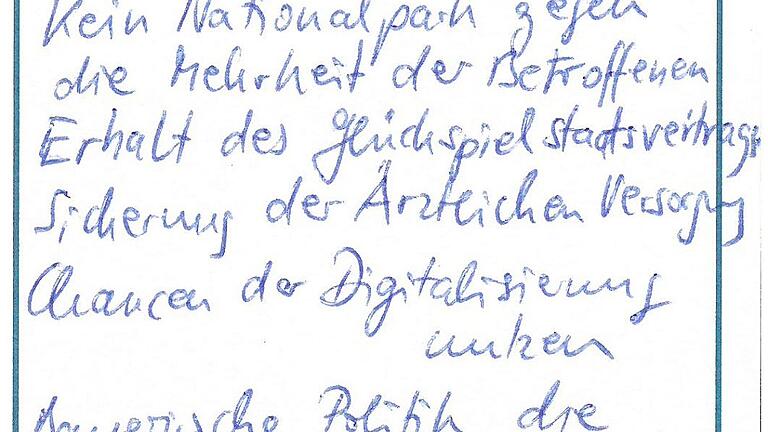 Kein Nationalpark gegen
die Mehrheit der Betroffenen
Erhalt des Glückspielstaatsvertrags
Sicherung der Ärztlichen Versorgung
Chancen der Digitalisierung
nutzen
Bayerische Politik die